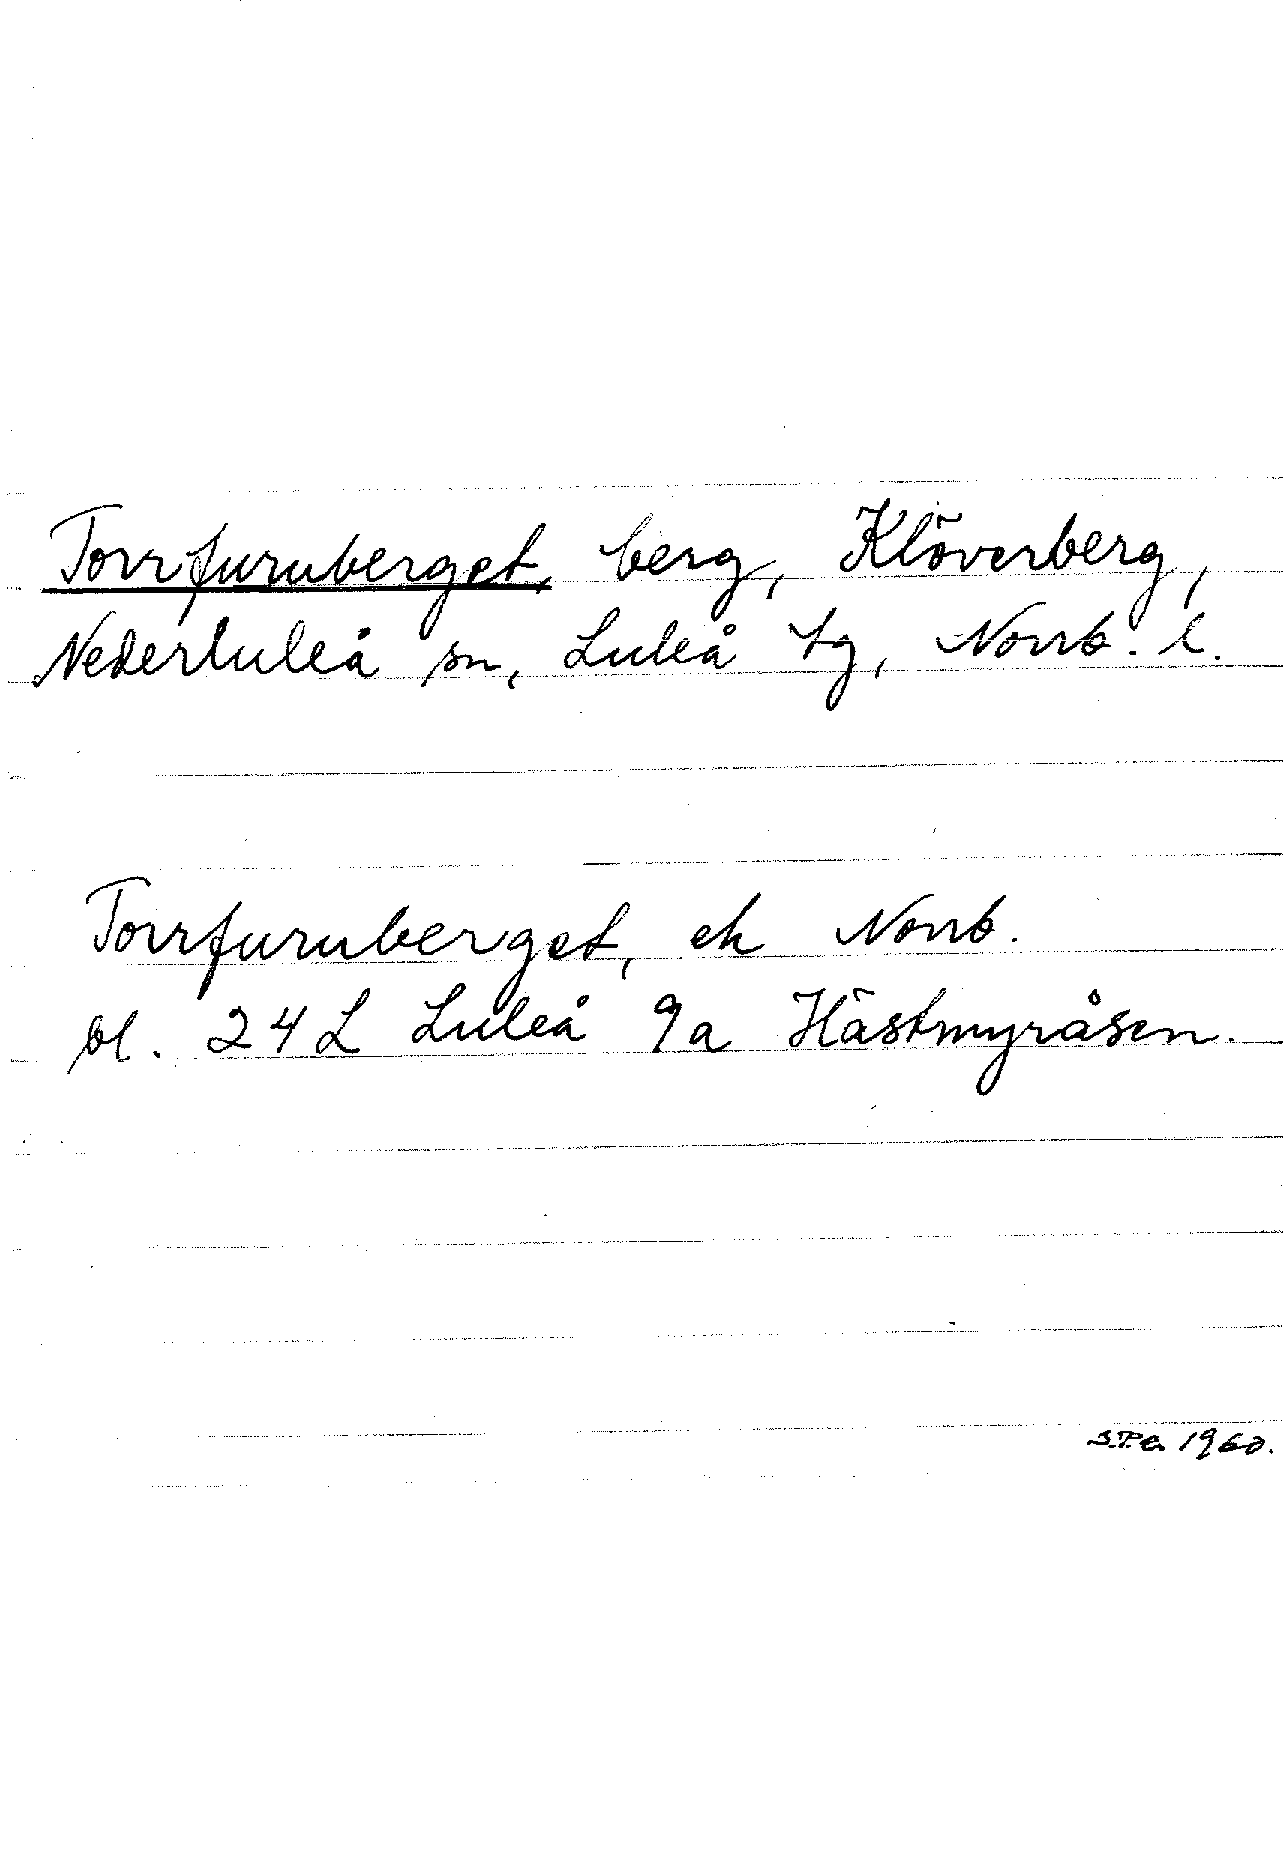 Torrfuruberget, berg, Klöverberg,
Nederluleå sn, Luleå tg, Norrb. l.
Torrfuruberget, ek Norrb.
bl. 24 L Luleå 9a Hästmyråsen.
1960.